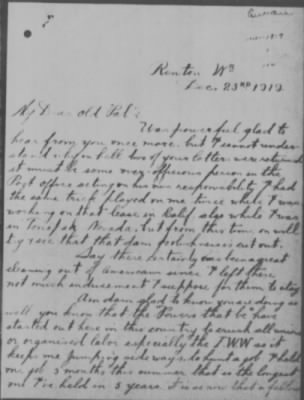 Renton Wn
Dec. 23rd 1919.
My Dear Old Pal:
Was powerful glad to
hear from you once more, but I cannot under-
stand why in hell two of your letters were returned
it must be some over-officious person in the
Post office acting on his own responsibility I had
the same trick played on me twice where I was
working on that lease in Calif also while I was
in Tonopah Nevada. but from this time on will
try & see that that dam foolishness is cut out.
Say there certainly has been a great
cleaning out of Americans since I left there
not much inducement I suppose for them to stay
Am dam glad to know you are doing so
well you know that the Powers that be have
started out here in this country to crush all union
or organized labor especially the IWW so it
keeps me jumping sideways to hunt a job I held
one job 3 months this summer that is the longest
one I've held in 5 years. that a fellow